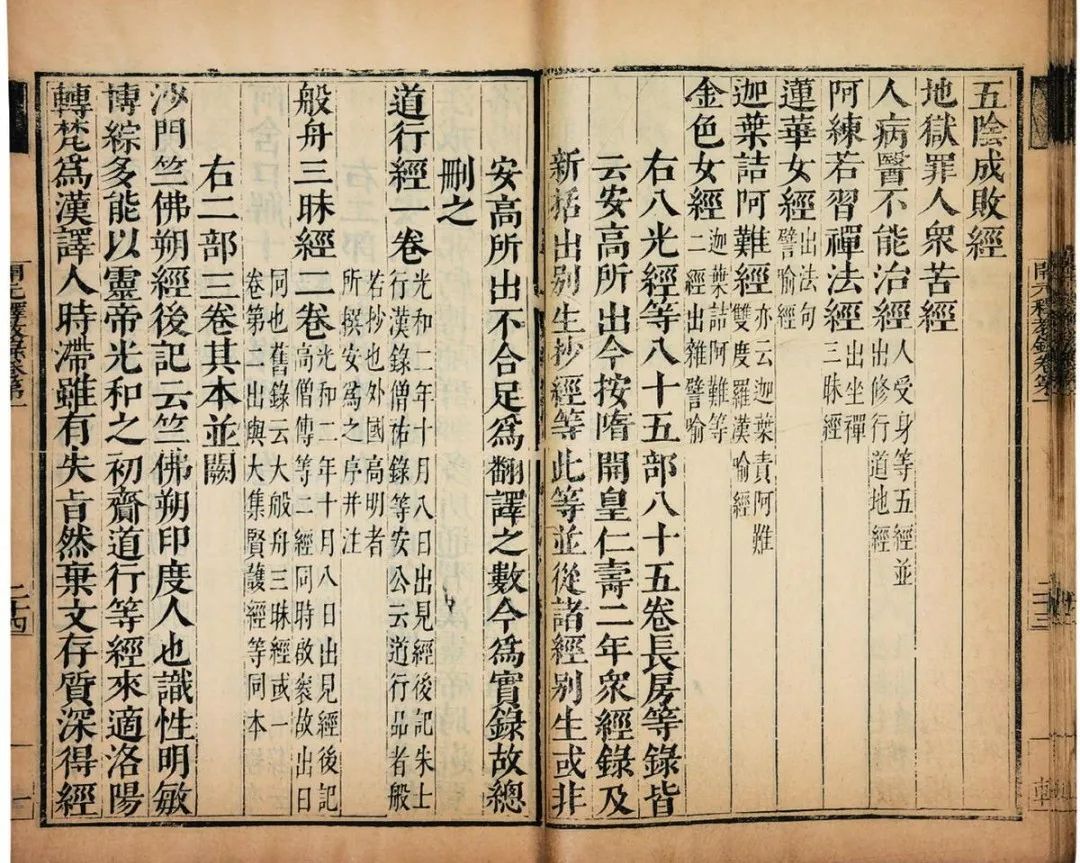 五陰成敗經
地獄罪人衆苦經
人病醫不能治經
人受身等五經並
出修行道地經
阿練若習禪法經
出坐禪
三昧經
蓮華女經
出法句
譬喻經
迦葉詰阿難經
亦云迦葉責阿難
經雙度羅漢喻經
金色女經
迦葉詰阿難等
二經出雜譬喻
右八光經等八十五部八十五卷長房等錄皆
云安高所出今按隋開皇仁壽二年衆經錄及
新括出別生抄經等此等並從諸經別生或非
安高所出不合足爲翻譯之數今爲實錄故總
刪之
道行經一卷
光和二年十月八日出見經後記朱士
行漢錄僧祐錄等安公云道行品者般
若抄也外國高明者
所撰安爲之序并注
般舟三昧經二卷
光和二年十月八日出見經後記
高僧傳等二經同時啟夾故出日
同也舊錄云大般舟三昧經或一
卷第二出與大集賢護經等同本
右二部三卷其本並闕
沙門竺佛朔經後記云竺佛朔印度人也識性明敏
博綜多能以靈帝光和之初齎道行等經來適洛陽
轉梵爲漢譯人時滯雖有失旨然棄文存質深得經
開元釋教錄卷第一
二十四